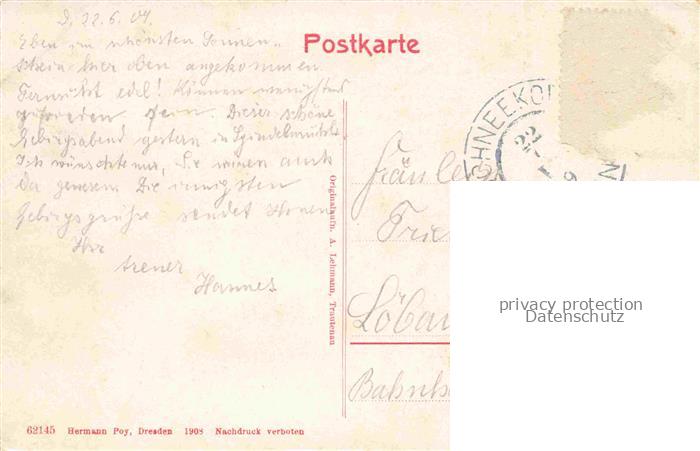 D, 22.6.09.
Eben im schönsten Sonnen-
schein hier oben angekommen.
Fernsicht edel! Können wenigstens
zufrieden sein. Dieser schöne
Gebirgsabend gestern in Spindelmühle.
Ich wünschte nur, Sie wären auch
da gewesen. Die innigsten
Gebirgsgrüße sendet Ihnen
Ihr
treuer
Hannes
Postkarte
SCHNEEKO
22
9
N
Fräulein
Frie
Löbau
Bahnho
Originalaufn. A. Lehmann, Trautenau
62145 Hermann Poy, Dresden 1908 Nachdruck verboten
privacy protection
Datenschutz